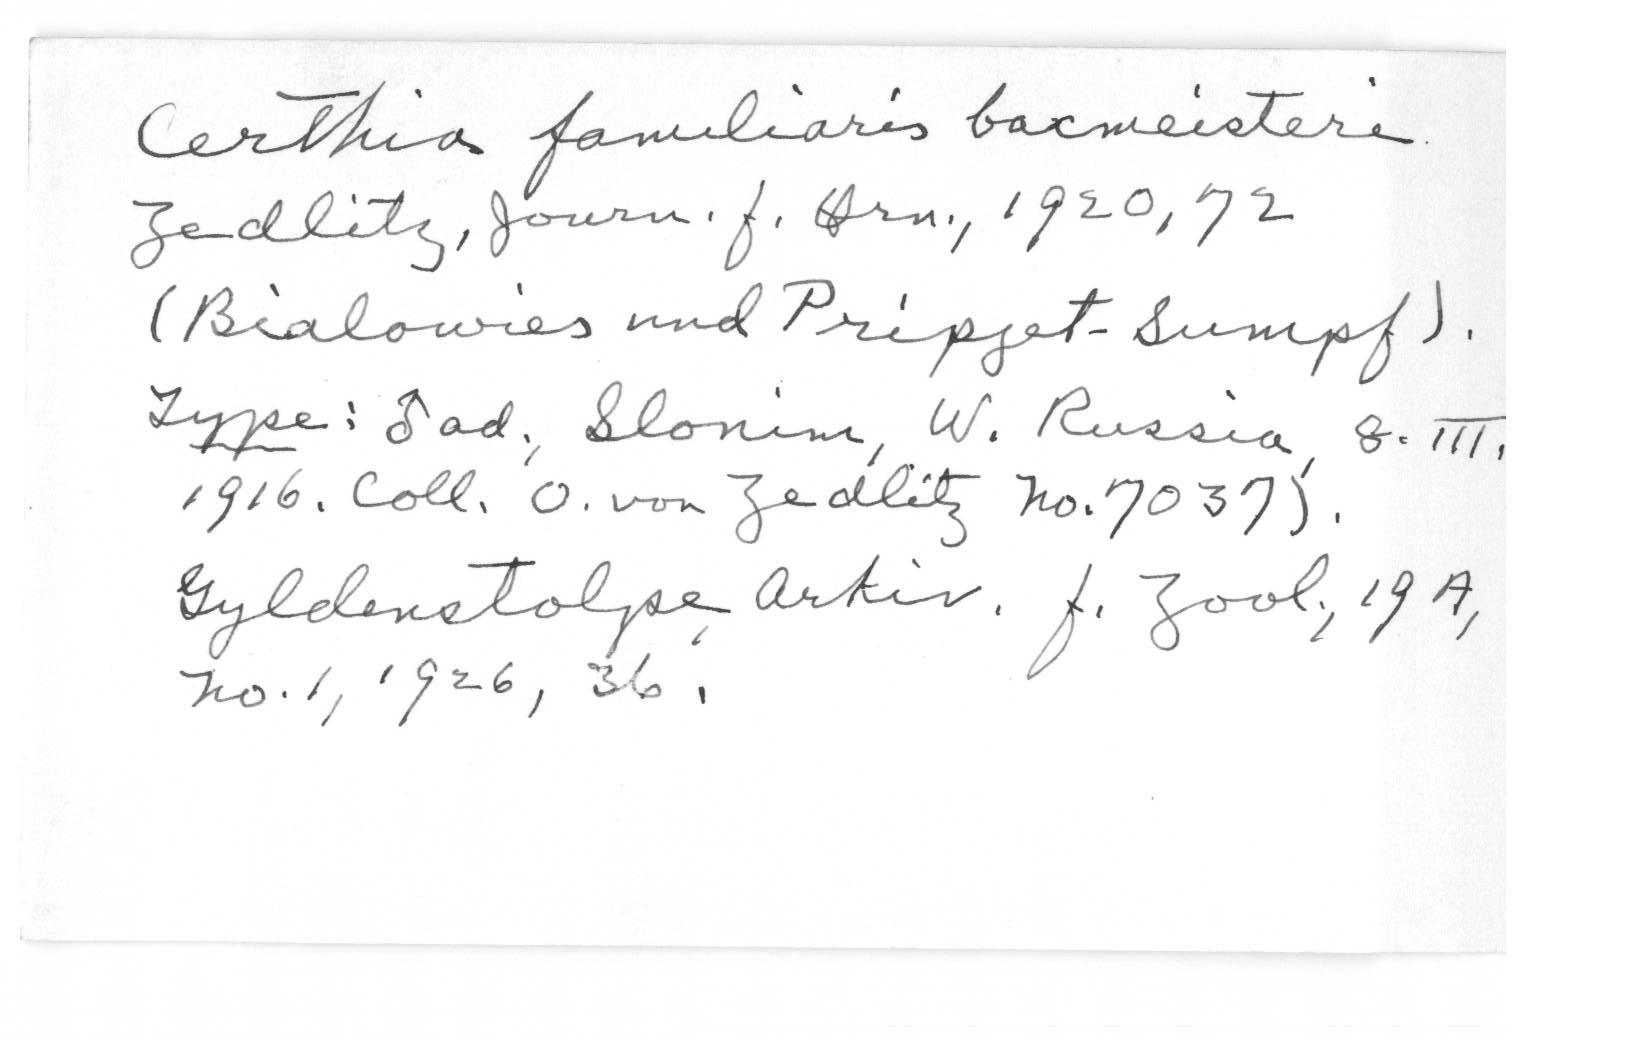 Certhia familiaris bacmeisteri
Zedlitz, Journ. f. Orn., 1920, 72
(Bialowies und Pripjet-Sumpf).
Type: ♂ ad., Slonim, W. Russia, 8. III.
1916. Coll. O. von Zedlitz No. 7037).
Gyldenstolpe, Arkiv. f. Zool., 19 A,
No. 1, 1926, 36.